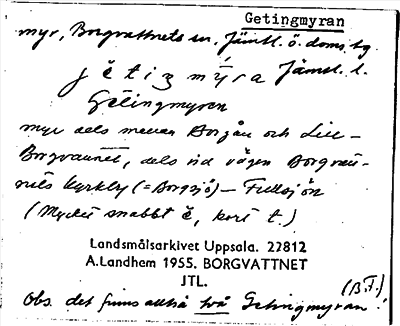 Getingmyran
myr, Borgvattnets sn. Jämtl. ö. doms. tg.
jĕtiŋmýra Jämtl. l.
Getingmyren
myr dels mellan Borgån och Lill-
Borgvattnet, dels vid vägen Borgvatt-
nets kyrkby (= Borgsjö) – Fullsjön
(Mycket snabbt ĕ, kort t.)
Landsmålsarkivet Uppsala. 22812
A.Landhem 1955. BORGVATTNET
JTL.
(B.F.)
Obs. det finns alltså två Getingmyran!